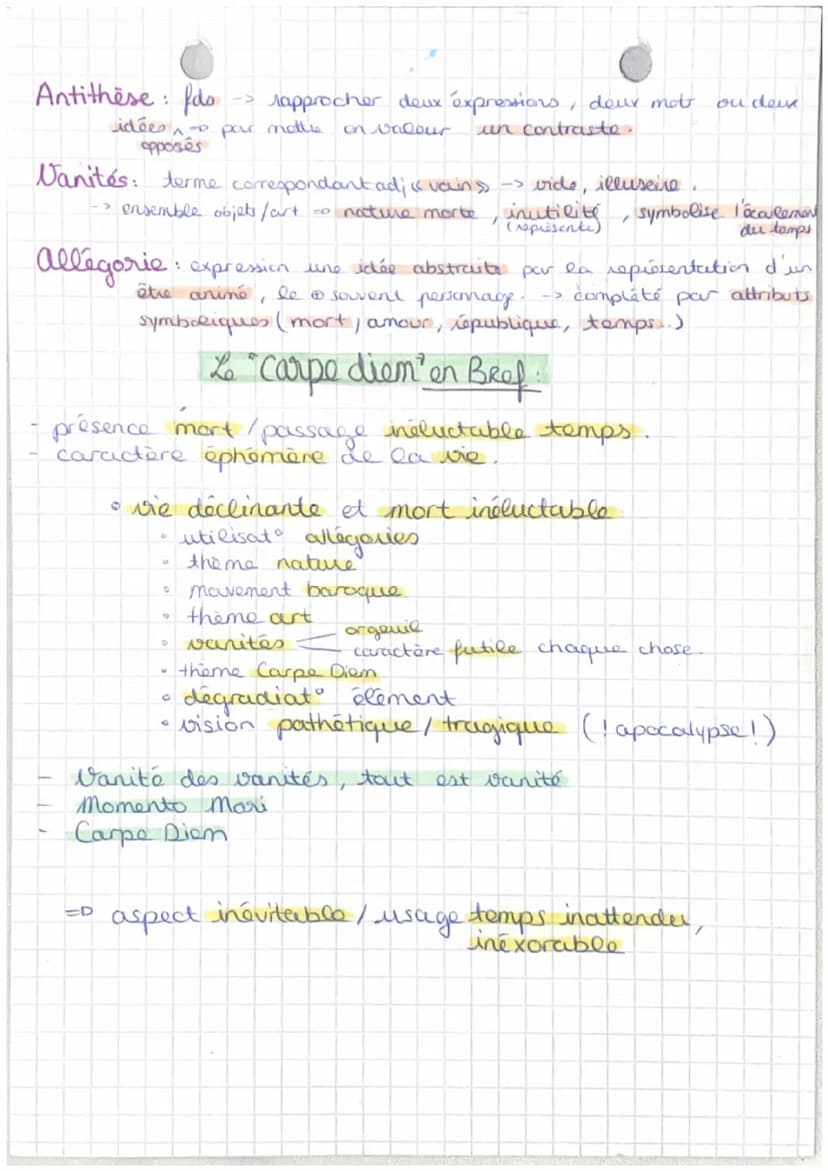 Antithèse : fds -> rapprocher deux expressions, deux mots ou deux
idées opposés -> par mettre en valeur un contraste.
Vanités : terme correspondant adj « vains » -> vide, illusoire.
-> ensemble objets/art => nature morte, inutilité (représente), symbolise l'écoulement
du temps
Allégorie : expression une idée abstraite par la représentation d'un
être animé, le ⊕ souvent personnage. -> complété par attributs
symboliques (mort, amour, république, temps..)
Le "carpe diem" en Bref :
- présence mort / passage inéluctable temps.
- caractère éphémère de la vie.
◦ vie déclinante et mort inéluctable
◦ utilisat° allégories
◦ thème nature
◦ mouvement baroque
◦ thème art
◦ vanités orgeuil
caractère futile chaque chose.
◦ thème Carpe Diem
◦ dégradiat° élément
◦ vision pathétique / tragique (! apocalypse !)
- Vanité des vanités, tout est vanité
- Momento Mori
- Carpe Diem
=D aspect inévitable / usage temps inattendu,
inéxorable